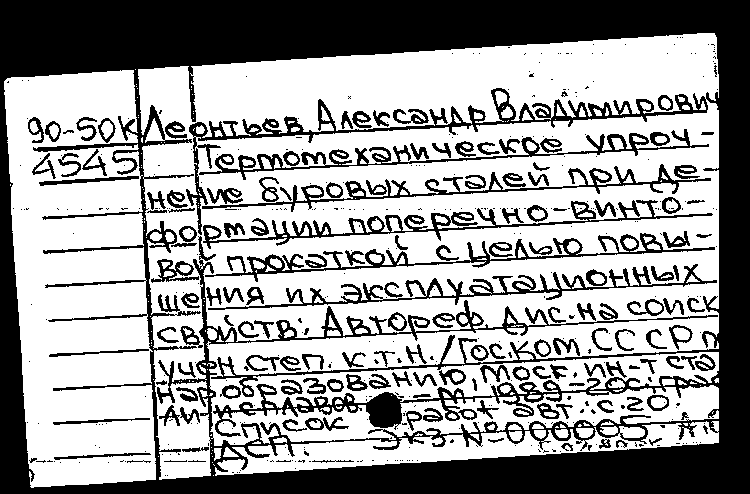 90-50К Леонтьев, Александр Владимирович
4545 Термомеханическое упроч-
нение буровых сталей при де-
формации поперечно-винто-
вой прокаткой с целью повы-
шения их эксплуатационных
свойств: Автореф. дис. на соиск
учен. степ. к.т.н. / Гос. ком. СССР п
нар образованию, Моск. ин-т ста
ли и сплавов. - М., 1989. - 20с.: граф
Список работ авт.: с. 20.
ДСП. Экз. № 000005